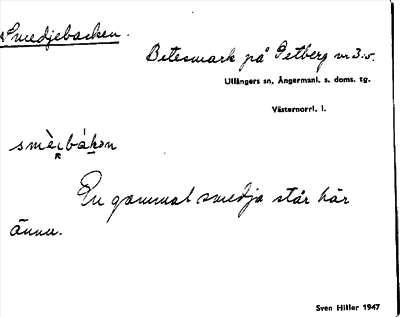 Smedjebacken.
Betesmark på Petberg nr 3:5.
Ullångers sn, Ångermanl. s. doms. tg.
Västernorrl. l.
En gammal smedja står här
ännu.
Sven Hiller 1947